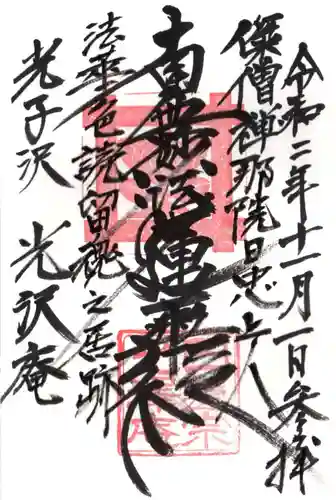 令和二年十一月一日参拝
傑僧禅那院日忠上人
南無妙法蓮華経
法華色読留魂之居跡
光子沢 光沢庵